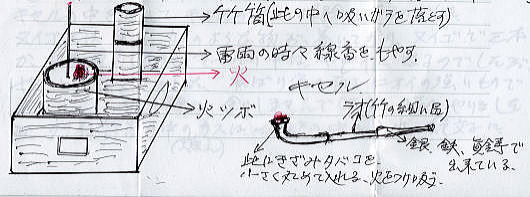 竹筒(此の中へ吸いガラを落とす)
雷雨の時々線香をもやす.
火
火ツボ
キセル
ラオ(竹の細い品)
銀、鉄、真鍮で
出来ている、
此にきざみタバコを
小さく丸めて入れる、火をつけ吸う